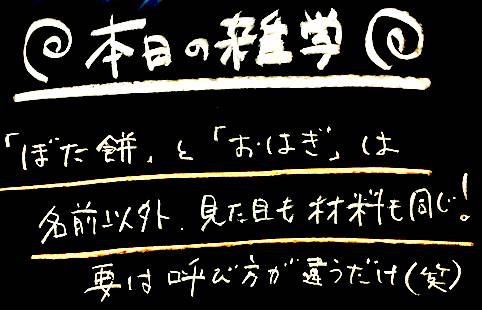 本日の雑学
「ぼた餅」と「おはぎ」は
名前以外、見た目も材料も同じ！
要は呼び方が違うだけ(笑)